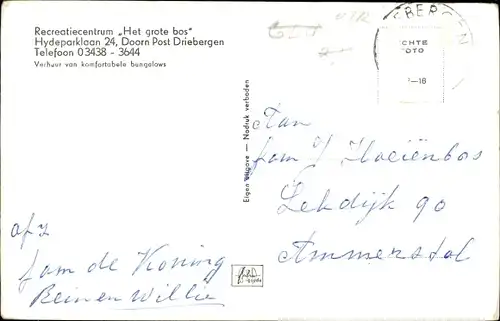 Recreatiecentrum „Het grote bos"
Hydeparklaan 24, Doorn Post Driebergen
Telefoon 03438 - 3644
Verhuur van komfortabele bungalows
BERGEN
CHTE
OTO
-18
Eigen uitgave — Nadruk verboden
Aan
fam J Hoeiënbos
Lekdijk 90
Ammerstol
afz
fam de Koning
Rein en Willie